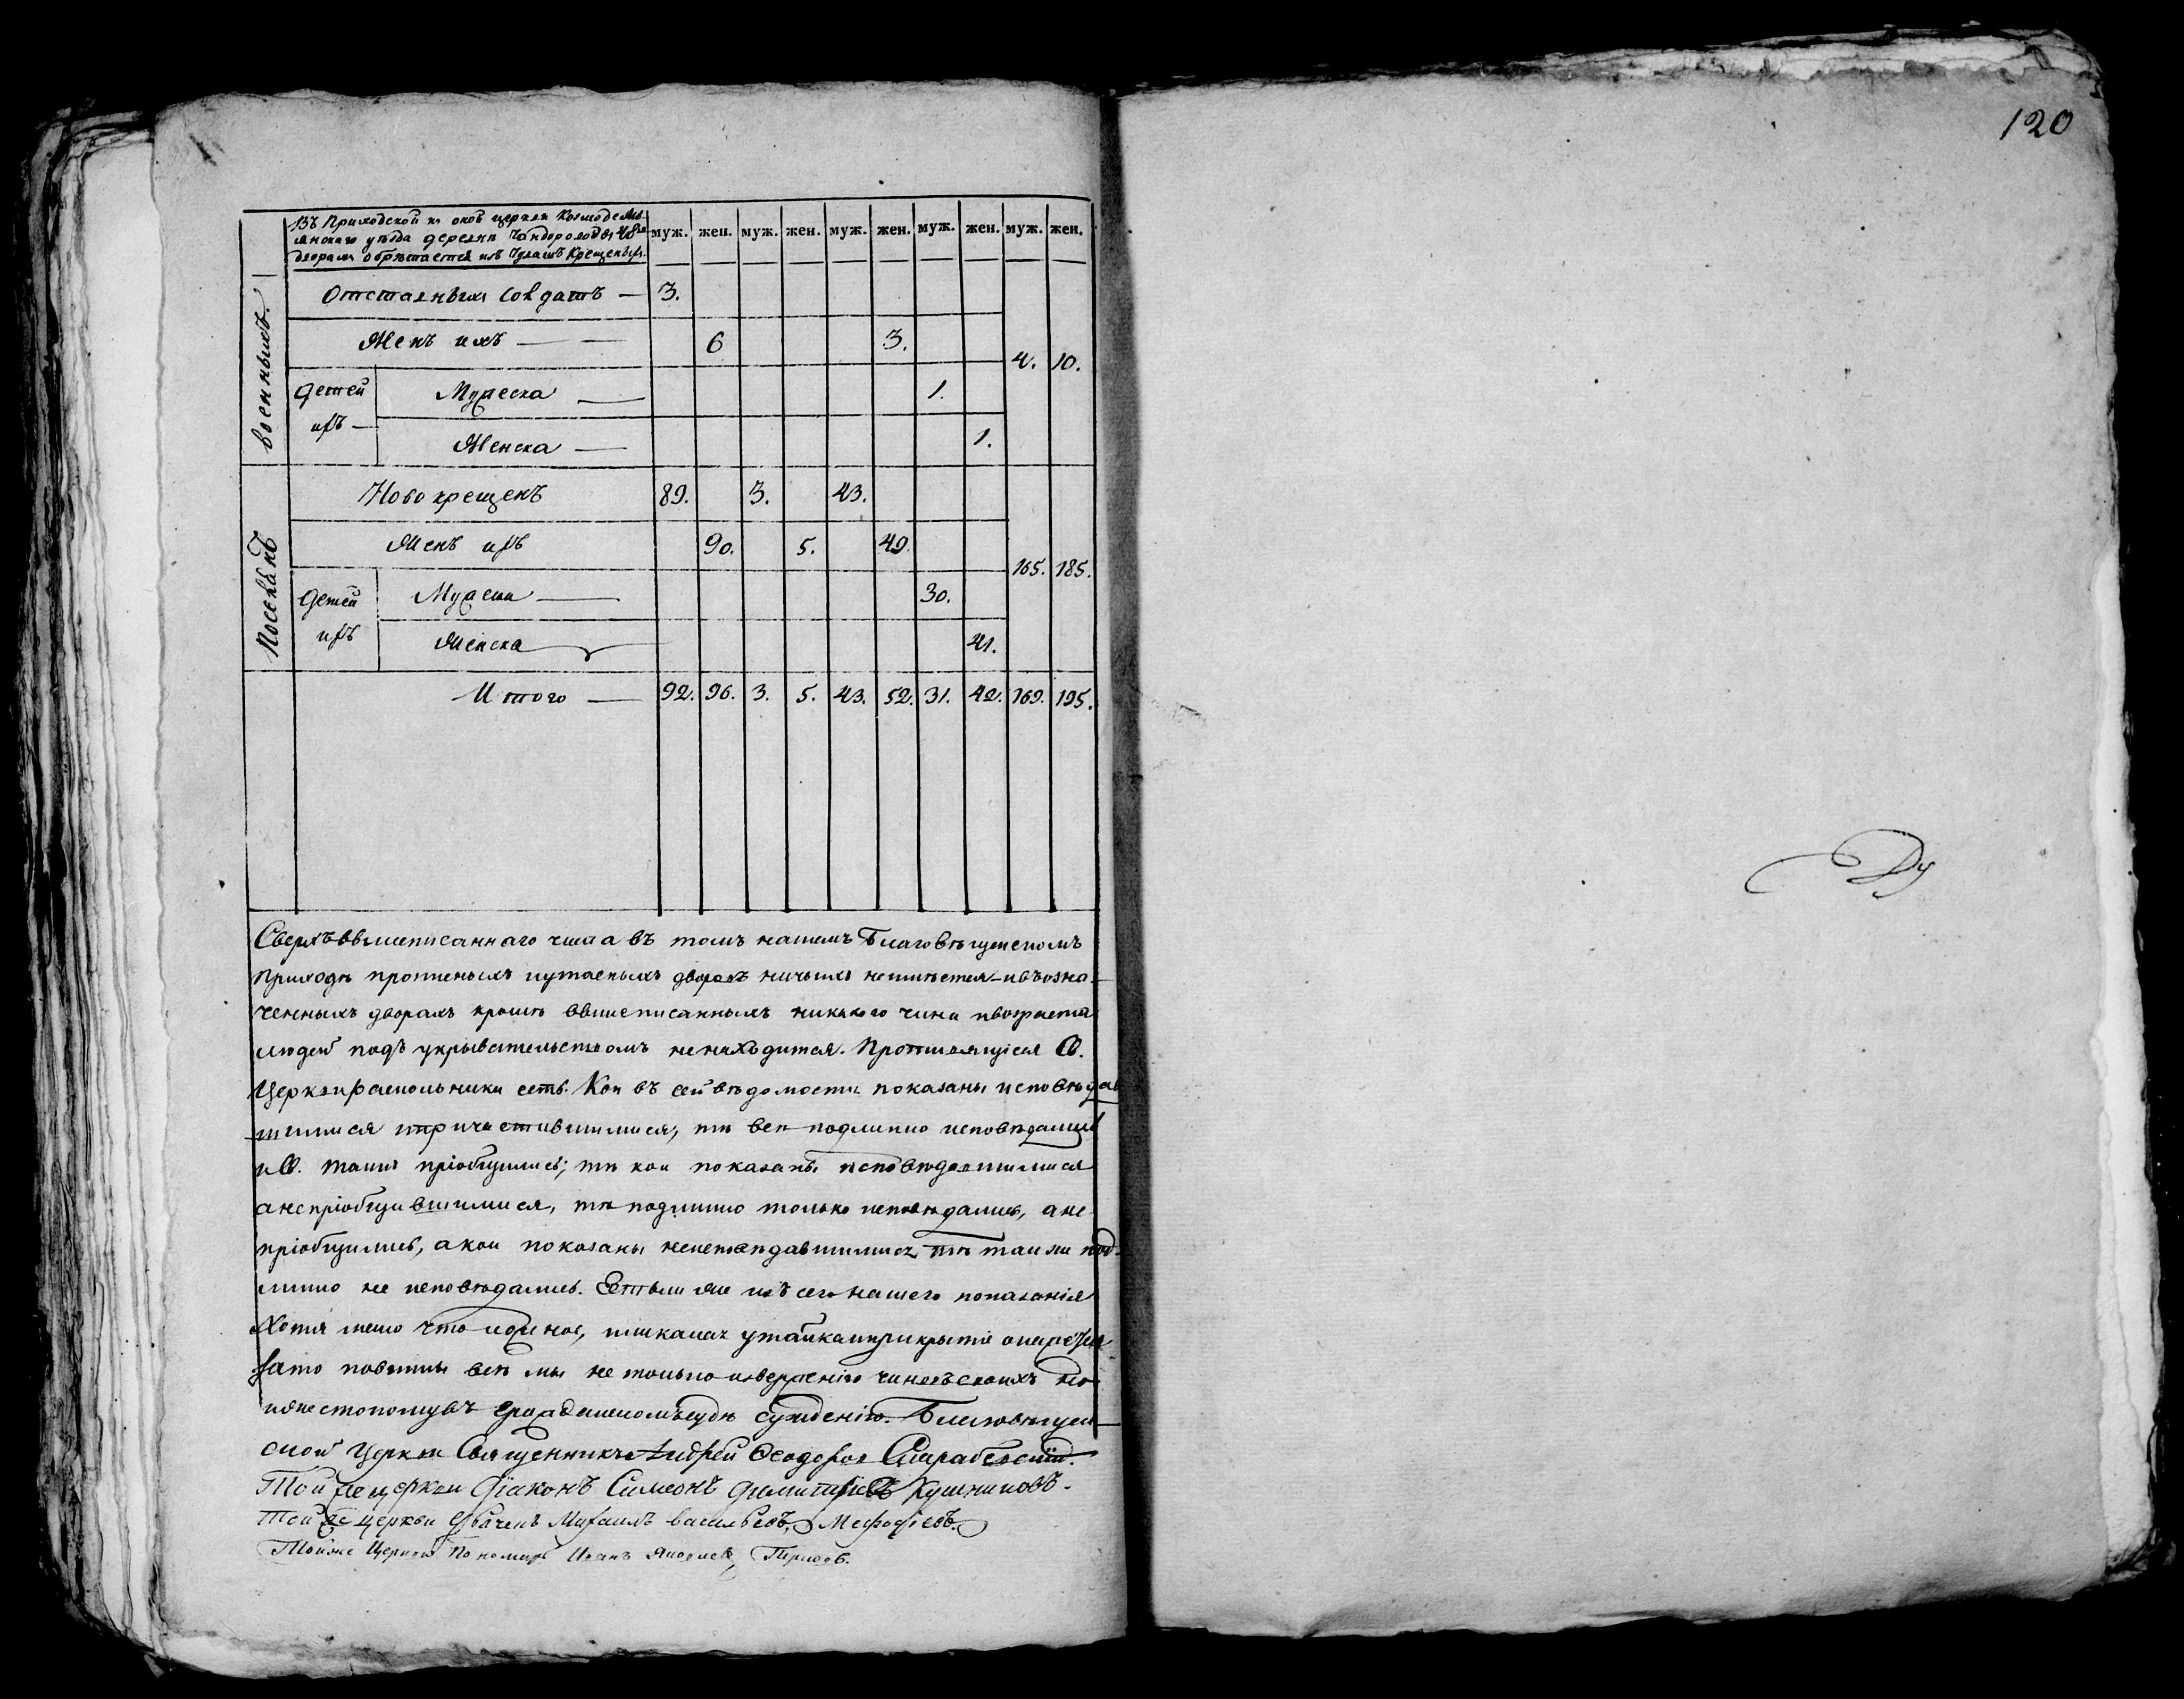 120
Въ Приходской къ оной церкви Козмодемь
янскаго уѣзда деревнѣ въ 48ми
дворахъ обрѣтается изъ Чувашъ Крещеныхъ
муж. жен. муж. жен. муж. жен. муж. жен. муж. жен.
военныхъ.
Отставныхъ Солдатъ — 3.
Женъ ихъ — — 6 3.
4. 10.
Детей ихъ —
Мужеска — 1.
Женска — 1.
Поселянъ
Новокрещенъ 89. 3. 43.
Женъ ихъ 90. 5. 49.
165. 185.
Детей ихъ
Мужеска — 30.
Женска — 41.
Итого — 92. 96. 3. 5. 43. 52. 31. 42. 169. 195.
Сверхъ вышеписаннаго числа въ томъ нашемъ Благовѣщенскомъ
Приходѣ пропеныхъ и утаеныхъ дворовъ ничьихъ неимѣется и въ озна-
ченныхъ дворахъ кромѣ вышеписанныхъ никакого чина и возраста
людей подъ укрывательствомъ ненаходится. Противляющіеся С.
Церкви раскольники есть. Кои въ сей вѣдомости показаны исповѣдав
шимися и причастившимися, тѣ всѣ подлинно исповѣдались
и С. таинъ пріобщились; тѣ кои показаны исповѣдавшимися
а непріобщившимися, тѣ подлинно только исповѣдались, а не
пріобщились, а кои показаны неисповѣдавшимися тѣ также под-
линно не исповѣдались. Естьли же изъ сего нашего показанія
Хотя мало что ложное, или какая утайка и прикрытіе окажется
зато повинны всѣ мы не только изверженію чиновъ своихъ но
и жестокому въ гражданскомъ судѣ сужденію. Благовѣщен
ской Церкви Священникъ Андрей Феодоров
Той же церкви Діаконъ Симеонъ Димитріевъ
Той же церкви Дьячекъ Михаилъ Васильевъ, Мефодіевъ.
Тойже Церкви Пономарь Иванъ Яковлевъ,